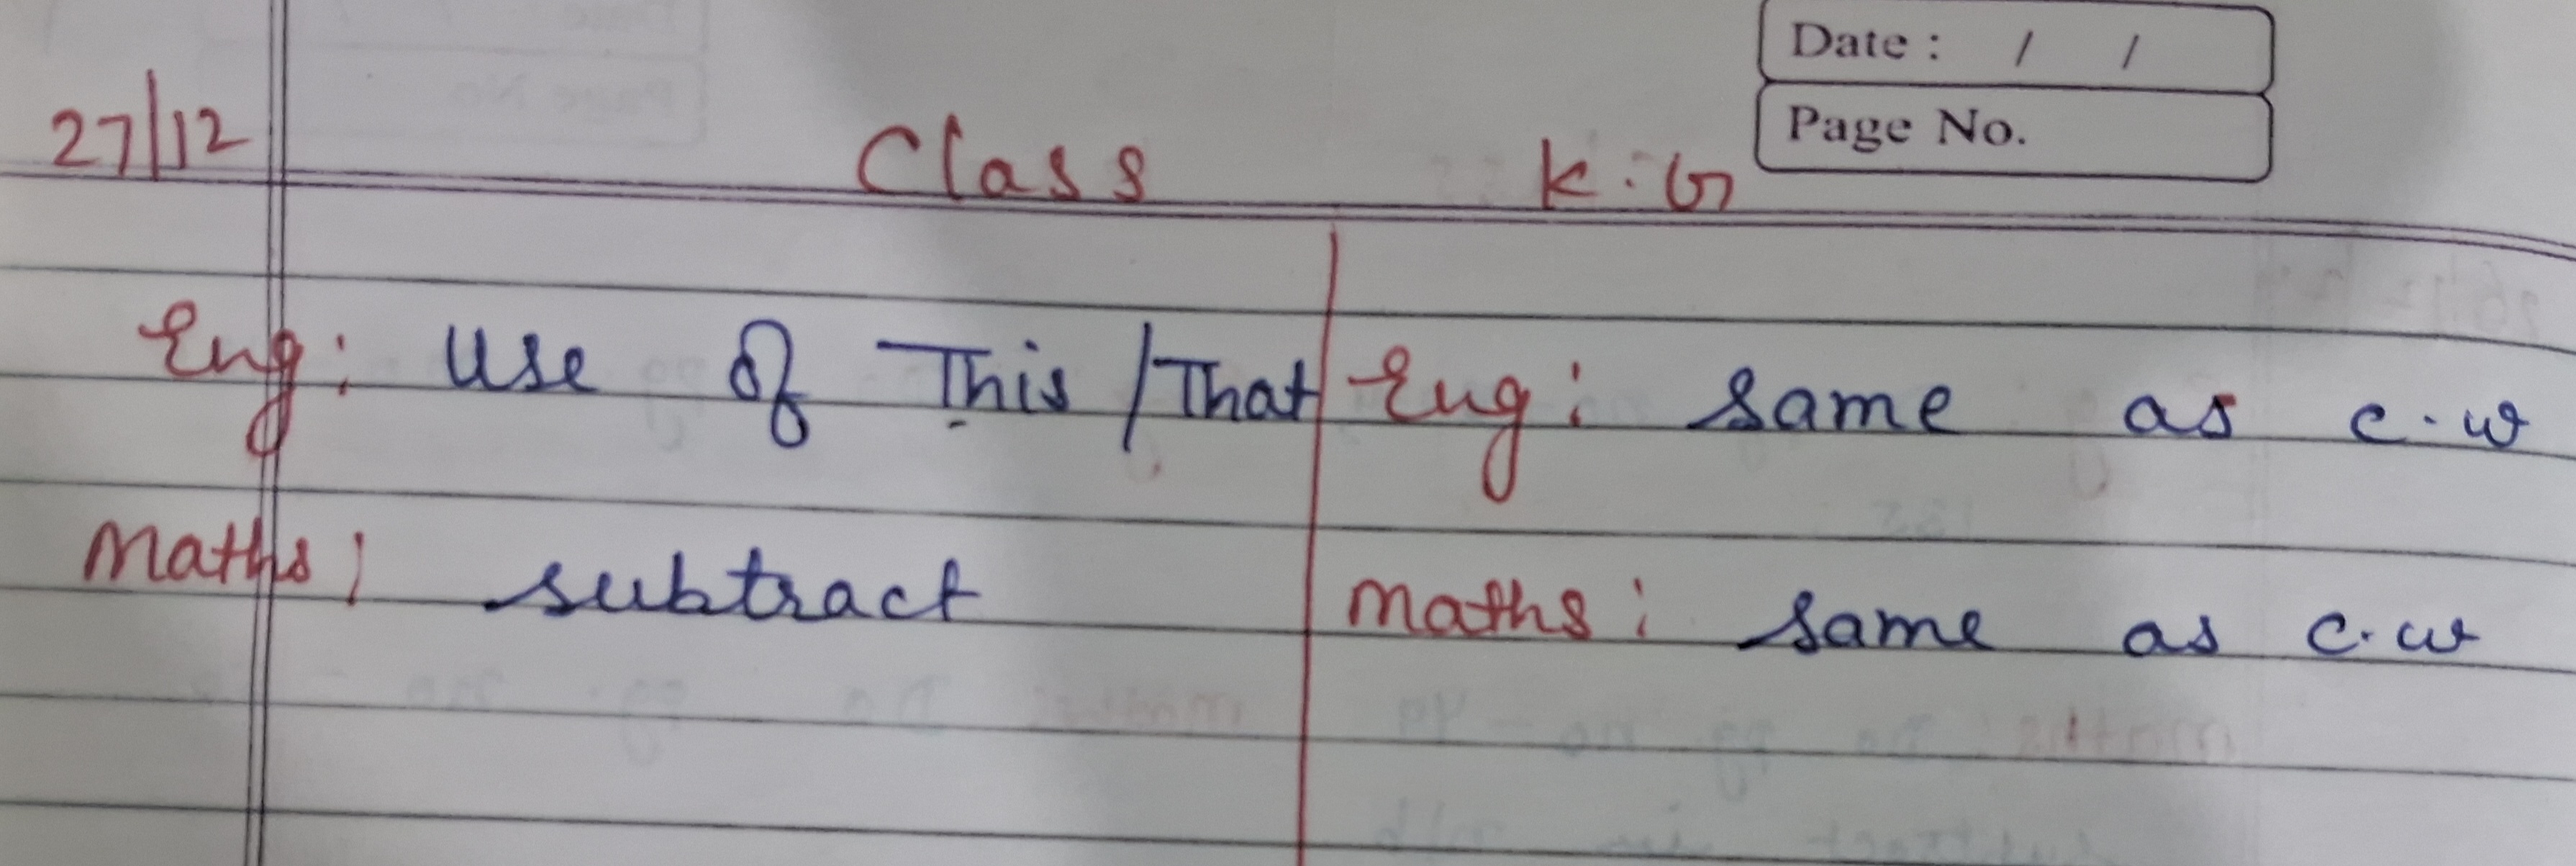 Date : / /
Page No.
27/12 Class K.G
Eng: Use of This/That
Maths: subtract
Eng: Same as c.w
Maths: Same as c.w